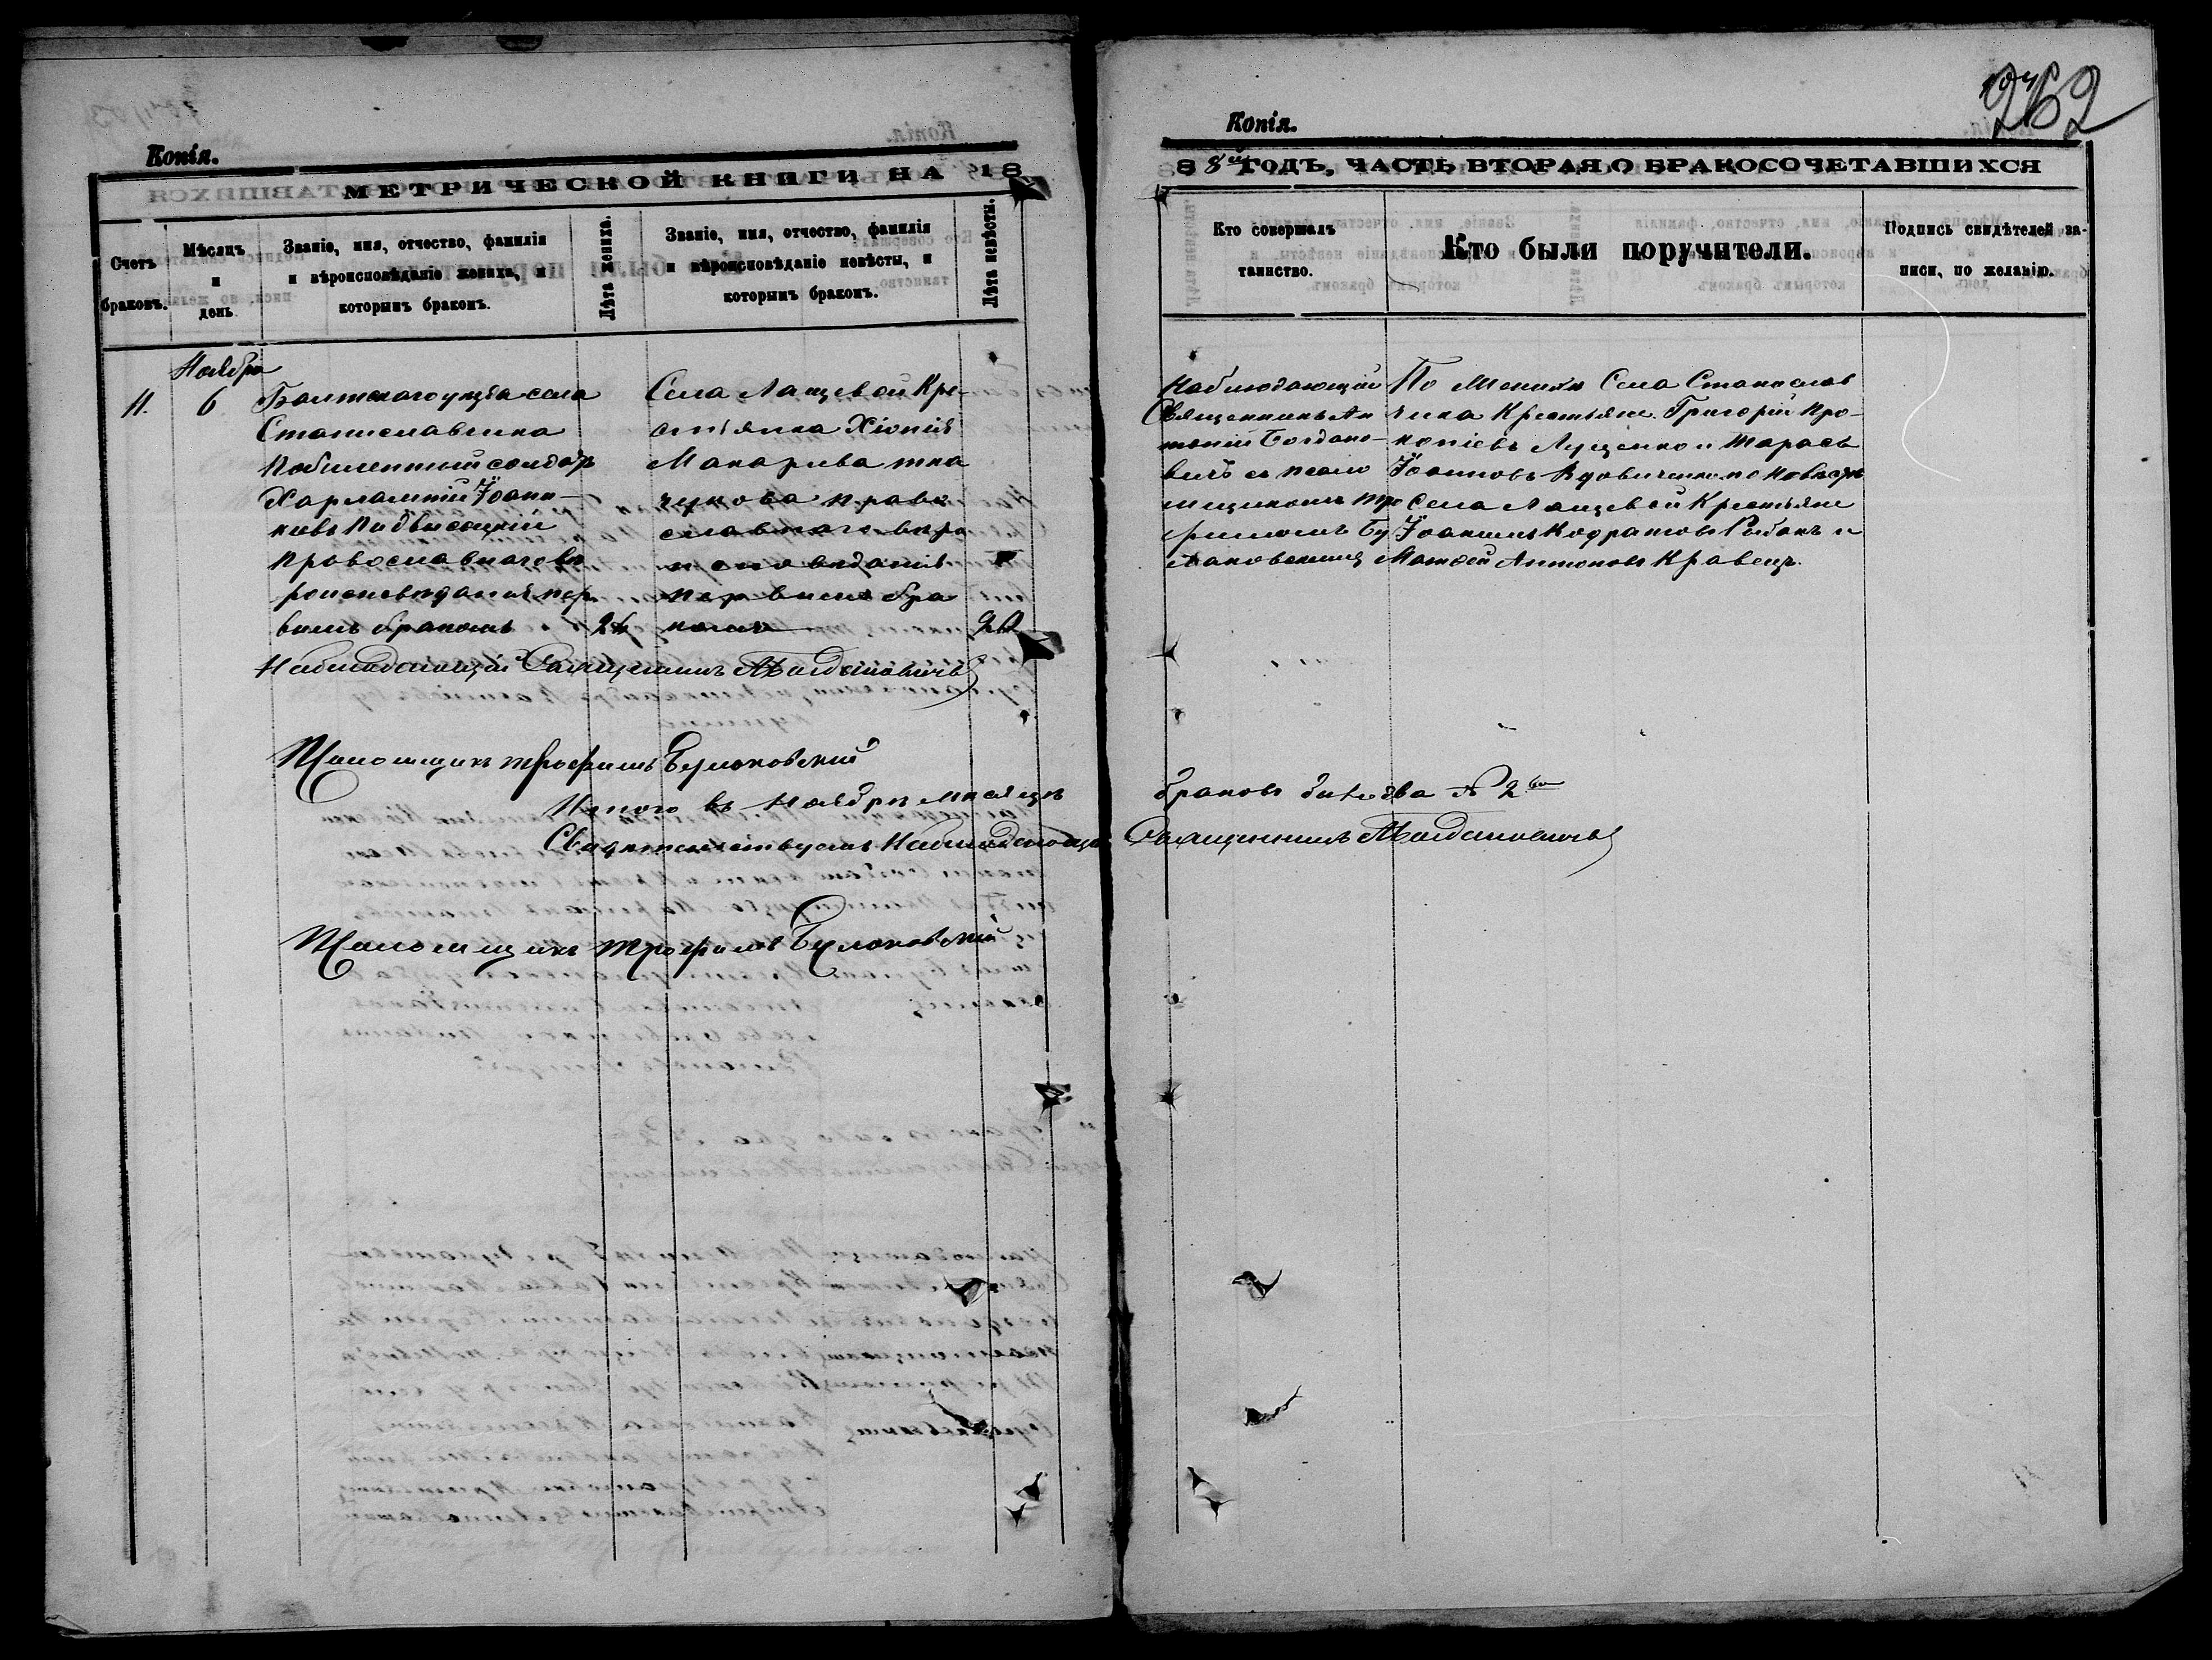 Копія.
МЕТРИЧЕСКОЙ КНИГИ НА 18
Счетъ браковъ.
Мѣсяцъ и день.
Званіе, имя, отчество, фамилія и вѣроисповѣданіе жениха, и которымъ бракомъ.
Лѣта жениха.
Званіе, имя, отчество, фамилія и вѣроисповѣданіе невѣсты, и которымъ бракомъ.
Лѣта невѣсты.
Ноября
11.
6
Балтскаго уѣзда села
Станиславчика
Харлампій Іоан-
новъ Подвысоцкій
православнаго вѣ
роисповѣданія пер
вымъ бракомъ
24
Села Лащевой Кре-
стьянка Хіонія
Макариева Тка
чукова право
славнаго вѣро
исповѣданія
первымъ бра
комъ
20
Наблюдающій Священникъ А Богдановичъ
Псаломщикъ Трофимъ
Итого въ Ноябрѣ мѣсяцѣ
Свидѣтельствуемъ Наблюдающій
Псаломщикъ Трофимъ
262
Копія.
88й ГОДЪ, ЧАСТЬ ВТОРАЯ О БРАКОСОЧЕТАВШИХСЯ
Кто совершалъ таинство.
Кто были поручители.
Подпись свидѣтелей записи, по желанію.
Наблюдающій
Священникъ Ан
тоній Богдано-
вичъ съ псало
мщикомъ Тро
фимомъ Бу
лаковскимъ
По женихѣ Села Станислав
чика Крестьяне Григорій Про-
копіевъ Луценко и Тарасъ
Іоанновъ Вдовиченко по невѣстѣ
Села Лащевой Крестьяне
Іоакимъ Кодратовъ Рыбакъ и
Матѳей Антоновъ Кравецъ.
браковъ было два № 2
Священникъ А Богдановичъ